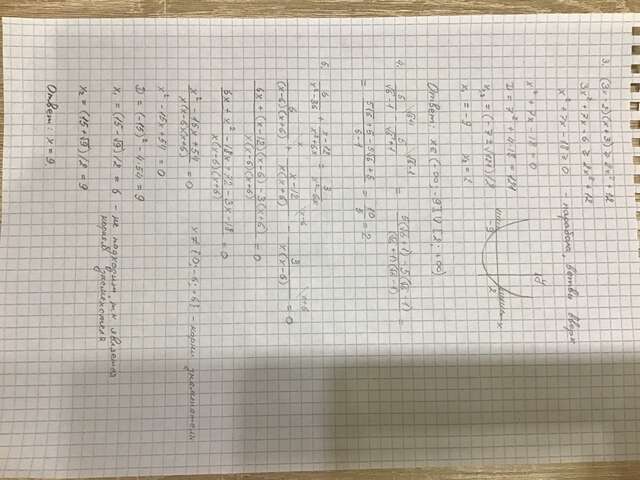 3. (3x-2)(x+3) ≥ 2x² + 12
3x² + 7x - 6 ≥ 2x² + 12
x² + 7x - 18 ≥ 0 - парабола, ветви вверх
x² + 7x - 18 = 0
D = 7² + 4·18 = 121
x₁ = -9 x₂ = 2
-9 2 x
Ответ: x ∈ (-∞; -9] ∪ [2; +∞)
4. 5/(√6-1) - 5/(√6+1) = (5(√6+1) - 5(√6-1))/((√6+1)(√6-1)) =
= (5√6 + 5 - 5√6 + 5)/(6-1) = 10/5 = 2
6/(x²-36) + (x-12)/(x²+6x) - 3/(x²-6x)
6/((x-6)(x+6)) + (x-12)/(x(x+6)) - 3/(x(x-6)) = 0
(6x + (x-12)(x-6) - 3(x+6))/(x(x-6)(x+6)) = 0
(6x + x² - 18x + 72 - 3x - 18)/(x(x-6)(x+6)) = 0
(x² - 15x + 54)/(x(x-6)(x+6)) = 0 x ≠ {0; -6; +6} - корни знаменателя
x² - 15x + 54 = 0
D = (-15)² - 4·54 = 9
x₁ = (15 - √9)/2 = 6 - не подходит, т.к. является
корнем знаменателя
x₂ = (15 + √9)/2 = 9
Ответ: x = 9.